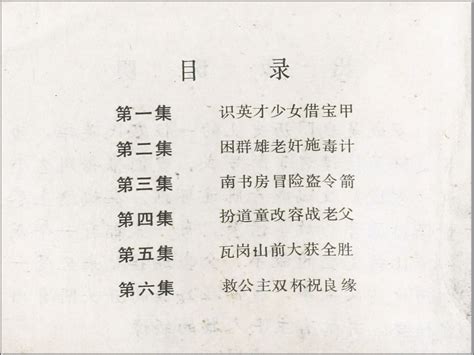 目 录
第一集 识英才少女借宝甲
第二集 困群雄老奸施毒计
第三集 南书房冒险盗令箭
第四集 扮道童改容战老父
第五集 瓦岗山前大获全胜
第六集 救公主双杯祝良缘